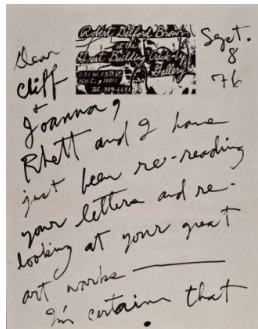 Robert Delford Brown
at the
Great Building Crack-Up
Gallery
251 W. 13th ST.
NYC, 10011
Tel.
Sept.
8
76
Dear
Cliff
+
Joanna,
Rhett and I have
just been re-reading
your letters and re-
looking at your great
art works —
I'm certain that